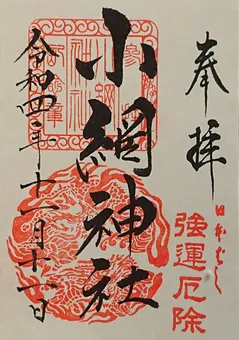 奉拝
日本ばし
強運厄除
小網神社
令和四年十一月十一日